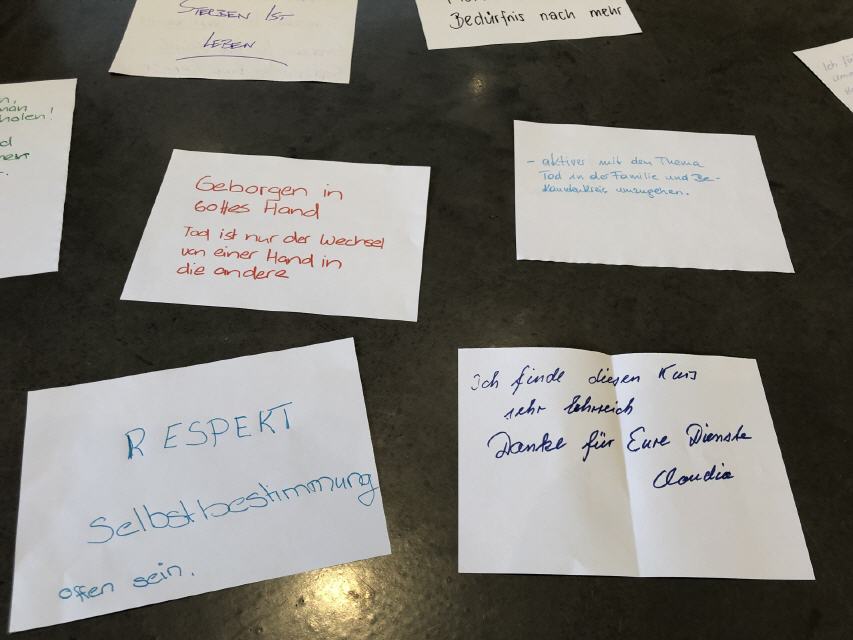 STERBEN IST
LEBEN
Bedürfnis nach mehr
Ich
n,
man
holen!
d
Geborgen in
Gottes Hand
Tod ist nur der Wechsel
von einer Hand in
die andere
- aktiver mit dem Thema
Tod in der Familie und Be-
kanntenkreis umzugehen.
RESPEKT
Selbstbestimmung
offen sein.
Ich finde diesen Kurs
sehr lehrreich
Danke für Eure Dienste
Claudia